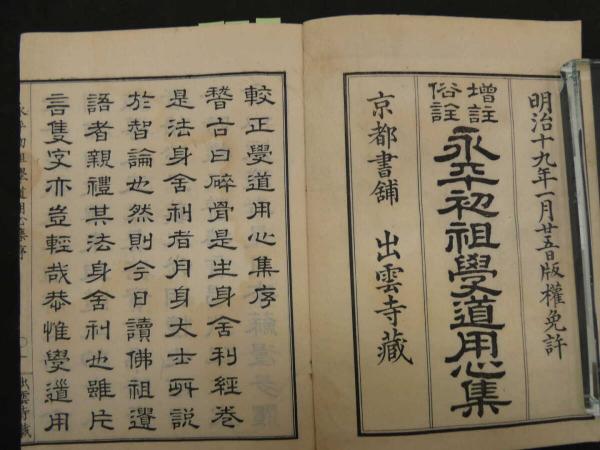 明治十九年一月廿五日版權免許
增註
俗詮
永平初祖學道用心集
京都書舗 出雲寺藏
較正學道用心集序
稽古曰碎骨是生身舍利經卷
是法身舍利者月身大士所說
於智論也然則今日讀佛祖遺
語者親禮其法身舍利也雖片
言隻字亦豈輕哉恭惟學道用
永平初祖學道用心集序
出雲寺藏